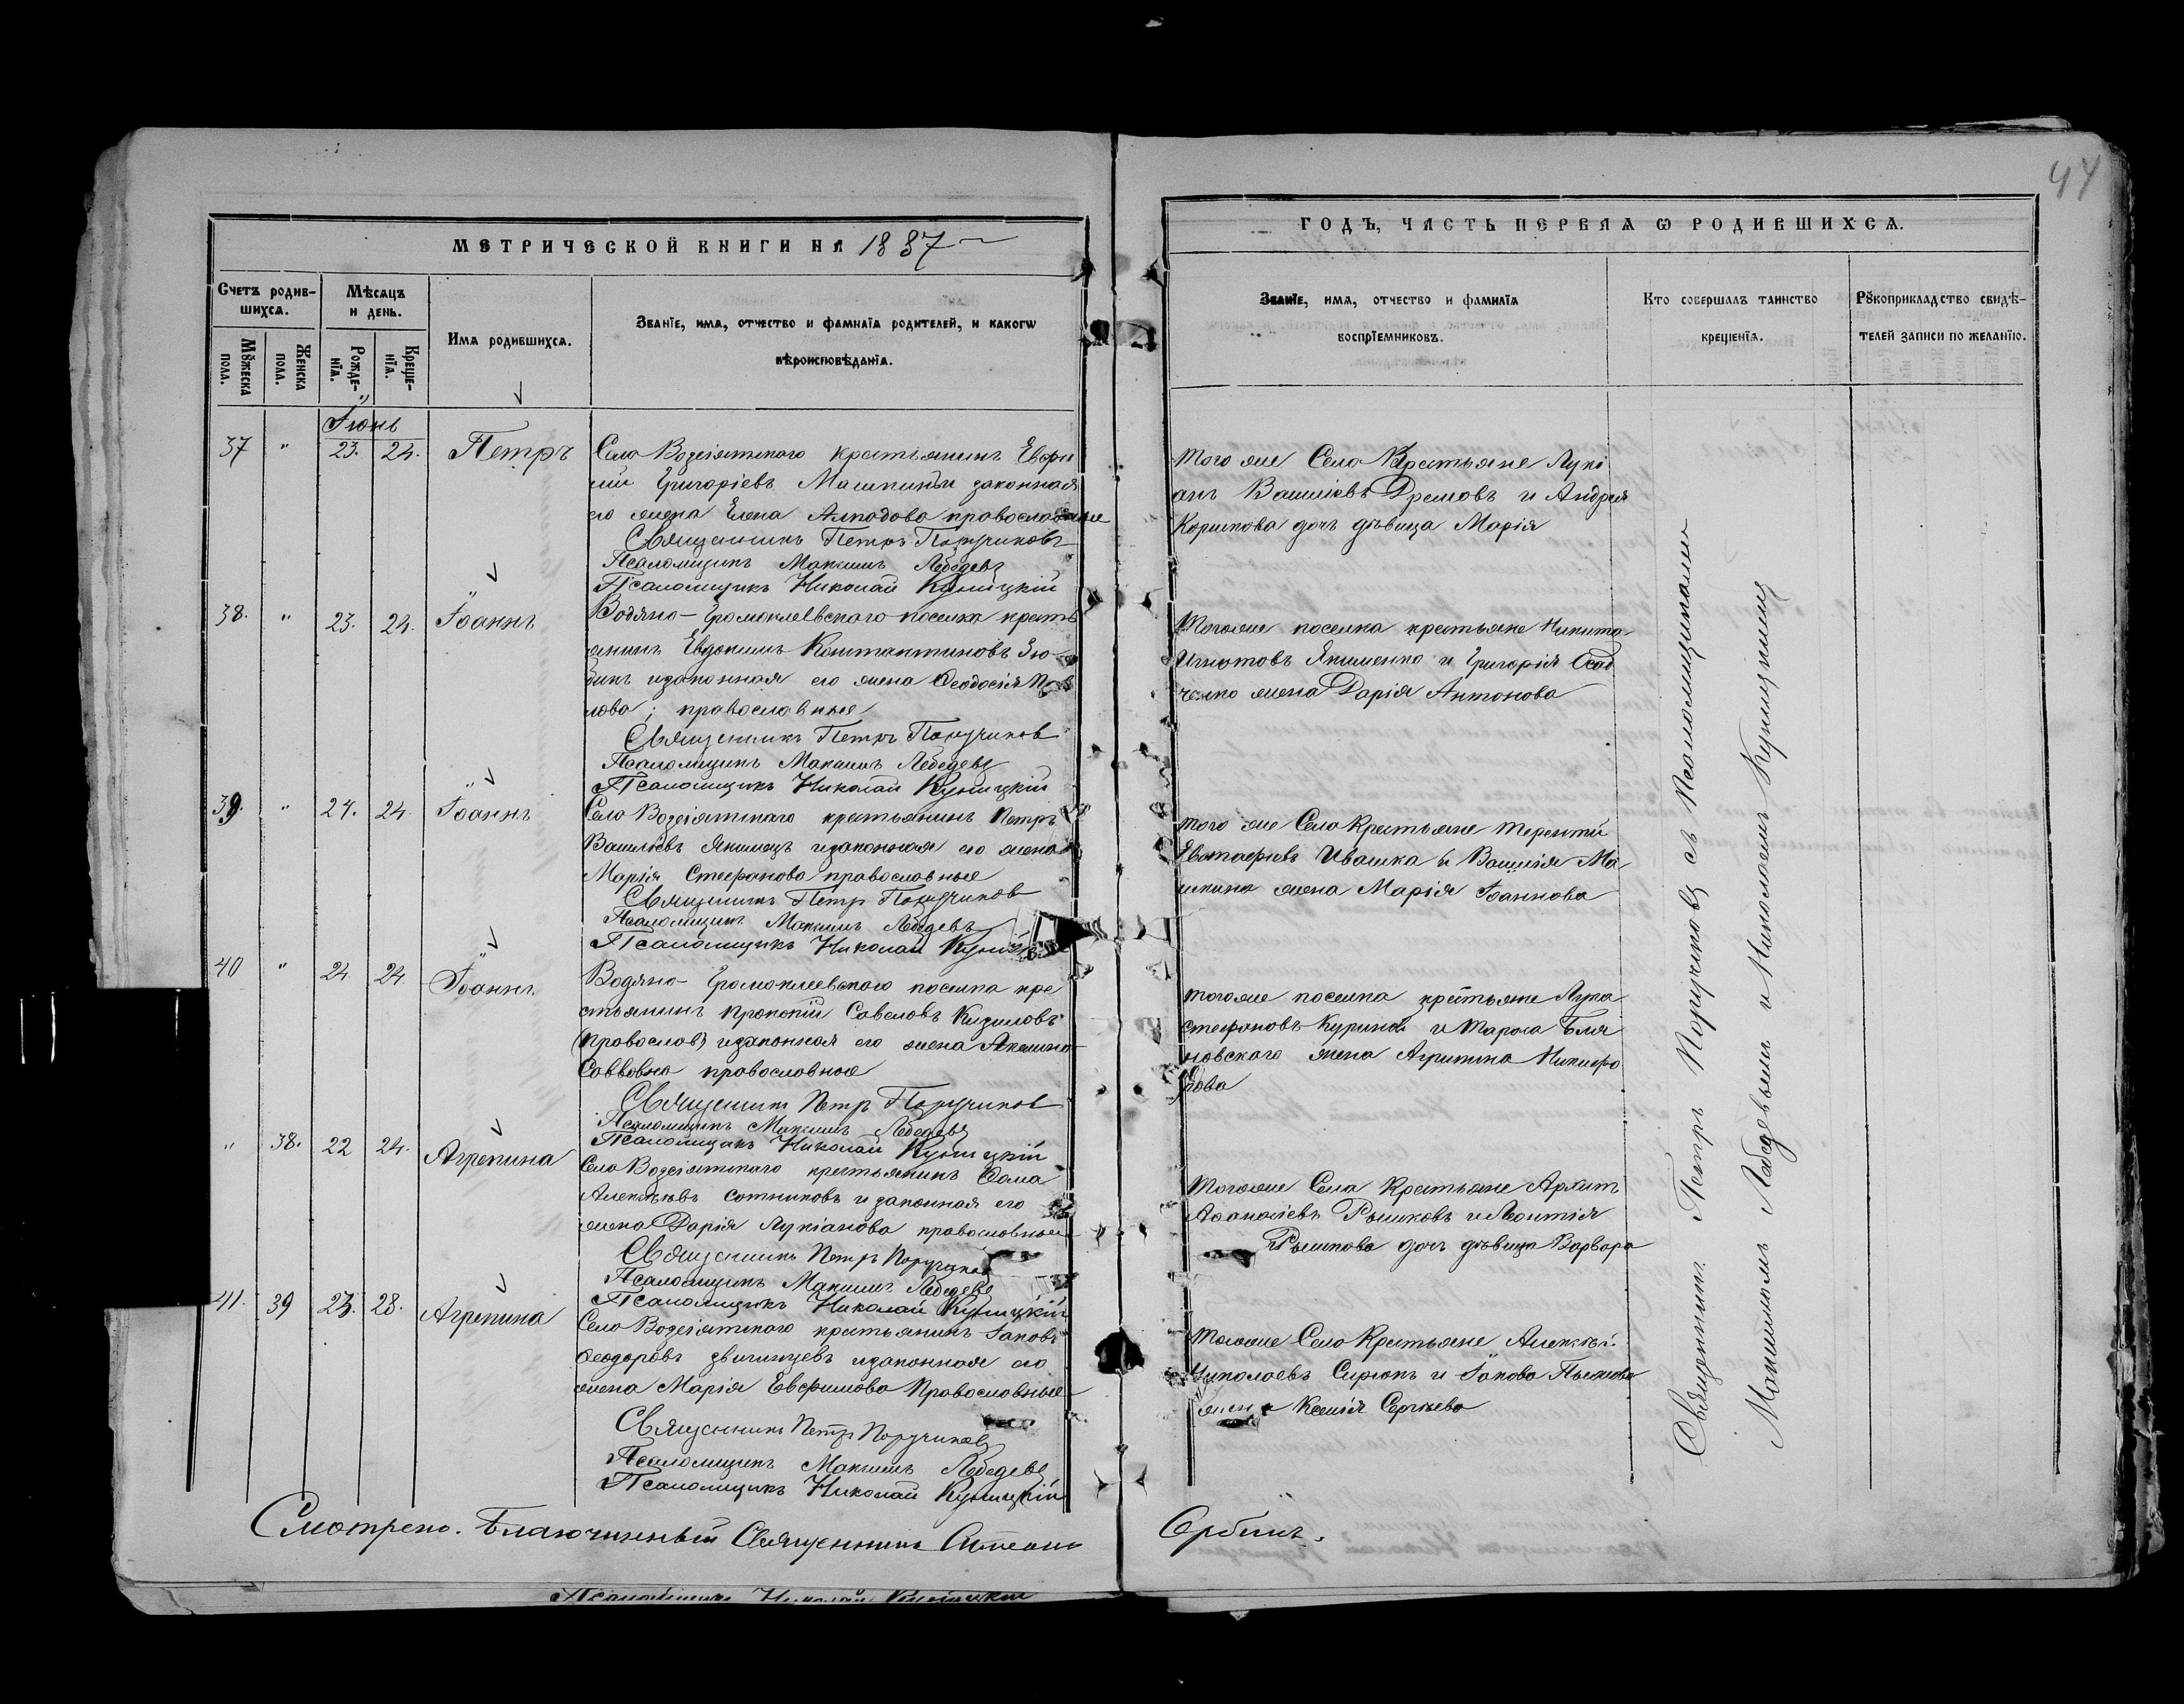 44
МЕТРИЧЕСКОЙ КНИГИ НА 1887
ГОДЪ, ЧАСТЬ ПЕРВАЯ Ѡ РОДИВШИХСЯ.
Счетъ родив-
шихся.
Мѣсяцъ
и день.
Мꙋжеска
пола.
Женска
пола.
Рожде-
нїя.
Креще-
нїя.
Имя родившихся.
Званїе, имя, отчество и фамилїя родителей, и какогѡ
вѣроисповѣданїя.
Званїе, имя, отчество и фамилїя
воспрїемниковъ.
Кто совершалъ таинство
крещенїя.
Рꙋкоприкладство свидѣ-
телей записи по желанїю.
Іюнь
37 " 23. 24. Петръ
Село Возсіятскаго крестьянинъ
Григоріевъ законная
его жена Елена православные
Священникъ Петръ Поручиковъ
Псаломщикъ Максимъ Лебедевъ
Псаломщикъ Николай Куницкій
того же Села Крестьяне Лукі
анъ Василіевъ и Андрея
Коршкова дочь дѣвица Марія
38. " 23. 24. Іоаннъ
Водяно-Громоклеевского поселка кресть
янинъ Евдокимъ Константиновъ Зю
бинъ и законная его жена Феодосія
лова; православные
Священникъ Петръ Поручиковъ
Псаломщикъ Максимъ Лебедевъ
Псаломщикъ Николай Куницкій
Тогоже поселка крестьяне Никита
Игнатовъ Якименко и Григорія Осад
ченко жена Дарія Антонова
39. " 24. 24 Іоаннъ
Село Возсіятскаго крестьянинъ Петръ
Василіевъ Якимецъ и законная его жена
Марія Стефанова православные
Священникъ Петръ Поручиковъ
Псаломщикъ Максимъ Лебедевъ
Псаломщикъ Николай
того же Село Крестьяне Терентій
Евстафіевъ Ивашка и Василія Ма
шкина жена Марія Іоаннова
40 " 24. 24 Іоаннъ
Водяно-Громоклеевского поселка кре
стьянинъ Прокопій Савеловъ Кизиловъ
(Правослов) и законная его жена Акелина
Саввовна православные
Священникъ Петръ Поручиковъ
Псаломщикъ Максимъ Лебедевъ
Псаломщикъ Николай Куницкій
тогоже поселка крестьяне Лука
Стефановъ Куриной и Тараса Бля
новскаго жена Агрипина Никифо
рова
" 38. 22 24. Агрепина
Село Возсіятскаго крестьянинъ Фома
Алексѣевъ Сотниковъ и законная его
жена Дарія Лукіанова православные
Священникъ Петръ Поручиковъ
Псаломщикъ Максимъ Лебедевъ
Псаломщикъ Николай Куницкій
Тогоже Села Крестьяне Архипъ
Афанасіевъ Рышковъ и Леонтія
Рышкова дочь дѣвица Варвара
41. 39 23. 28. Агрепина
Село Возсіятскаго крестьянинъ Іаковъ
Феодоровъ Звигинцевъ и законная его
жена Марія Евфимова Православные
Священникъ Петръ Поручиковъ
Псаломщикъ Максимъ Лебедевъ
Псаломщикъ Николай Куницкій
Тогоже Село Крестьяне Алексѣй
Николаевъ Сирюкъ и Іакова
жена Ксенія Сергѣева
Священникъ Петръ Поручиковъ съ Псаломщиками
Максимомъ Лебедевымъ и Николаемъ Куницкимъ
Смотрено. Благочинный Священникъ
Сербинъ.
Псаломщикъ Николай Куницкій